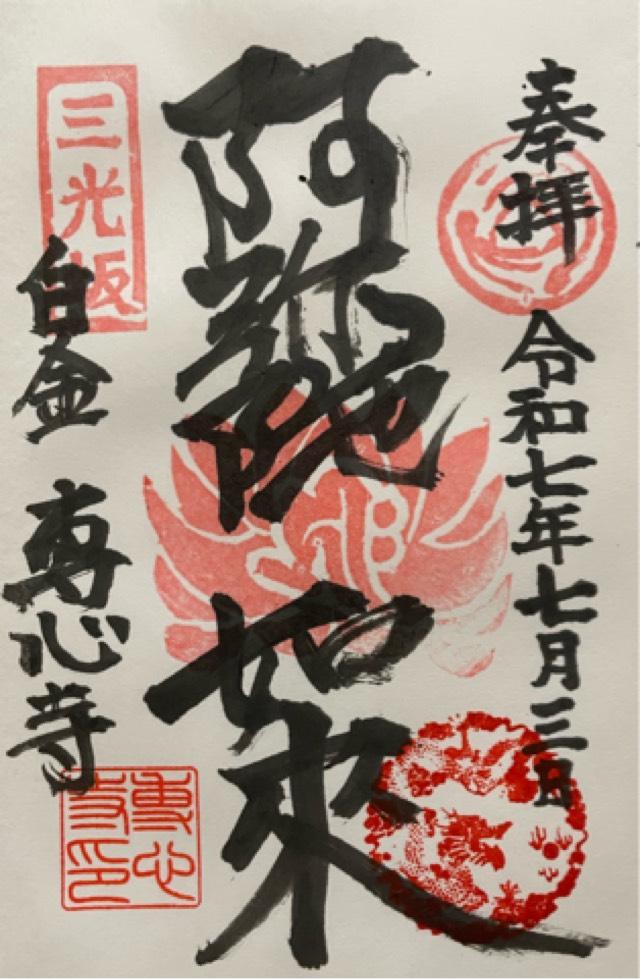 奉拝
令和七年七月三日
阿弥陀如来
三光坂
白金 専心寺
専心寺印